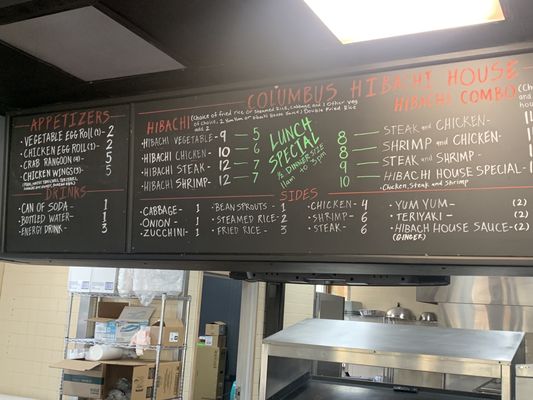 COLUMBUS HIBACHI HOUSE
APPETIZERS
VEGETABLE EGG ROLL (1) 2
CHICKEN EGG ROLL (1) 2
CRAB RANGOON (4) 5
CHICKEN WINGS (5) 5
DRINKS
CAN OF SODA- 1
BOTTLED WATER- 1
ENERGY DRINK- 3
HIBACHI (Choice of fried rice or Steamed Rice, Cabbage and 1 Other veg
HIBACHI VEGETABLE - 9 5
HIBACHI CHICKEN - 10 6
HIBACHI STEAK - 12 7
HIBACHI SHRIMP - 12 7
LUNCH
SPECIAL
½ DINNER SIZE
11am to 3pm
HIBACHI COMBO
8 STEAK and CHICKEN-
8 SHRIMP and CHICKEN-
8 STEAK and SHRIMP -
10 HIBACHI HOUSE SPECIAL
Chicken, Steak and Shrimp
SIDES
CABBAGE- 1
ONION- 1
ZUCCHINI- 1
BEAN SPROUTS- 1
STEAMED RICE- 2
FRIED RICE- 3
CHICKEN- 4
SHRIMP- 6
STEAK- 6
YUM YUM- (2)
TERIYAKI- (2)
HIBACHI HOUSE SAUCE- (2)
(GINGER)